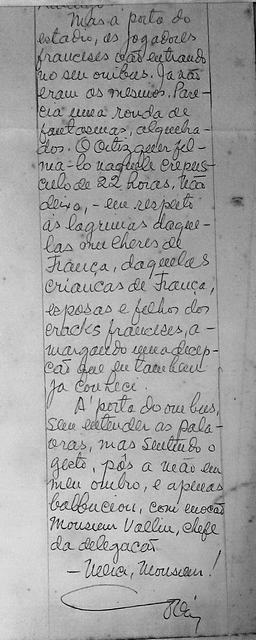 Mas a porta do
estadio, os jogadores
francises vão entrando
no seu onibus. Ja não
eram os mesmos. Pare-
cia uma ronda de
fantasmas, alquebra-
dos. O Ortiz quer fil-
ma-lo naquele crepus-
culo de 22 horas. Não
deixo, - em respeito
ás lagrimas daque-
las mulheres de
França, daquelas
crianças de França,
esposas e filhos dos
cracks francises, a-
margando uma decep-
ção que eu tambem
ja conheci.
A' porta do onibus,
sem entender as pala-
vras, mas sentindo o
gesto, pôs a mão em
meu ombro, e apenas
balbuciou, com emoção
Monsieur Vallin, chefe
da delegação
- Merci, Monsieur!